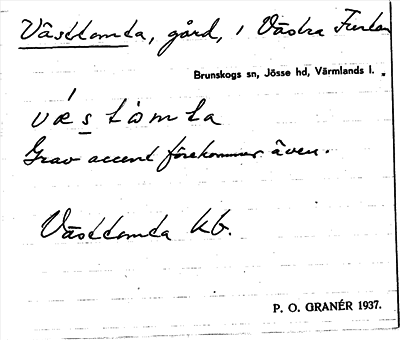 Västtomta, gård, i Västra Furtan
Brunskogs sn, Jösse hd, Värmlands l.
væstòmta
Grav accent förekommer även.
Västtomta kb.
P. O. GRANÉR 1937.